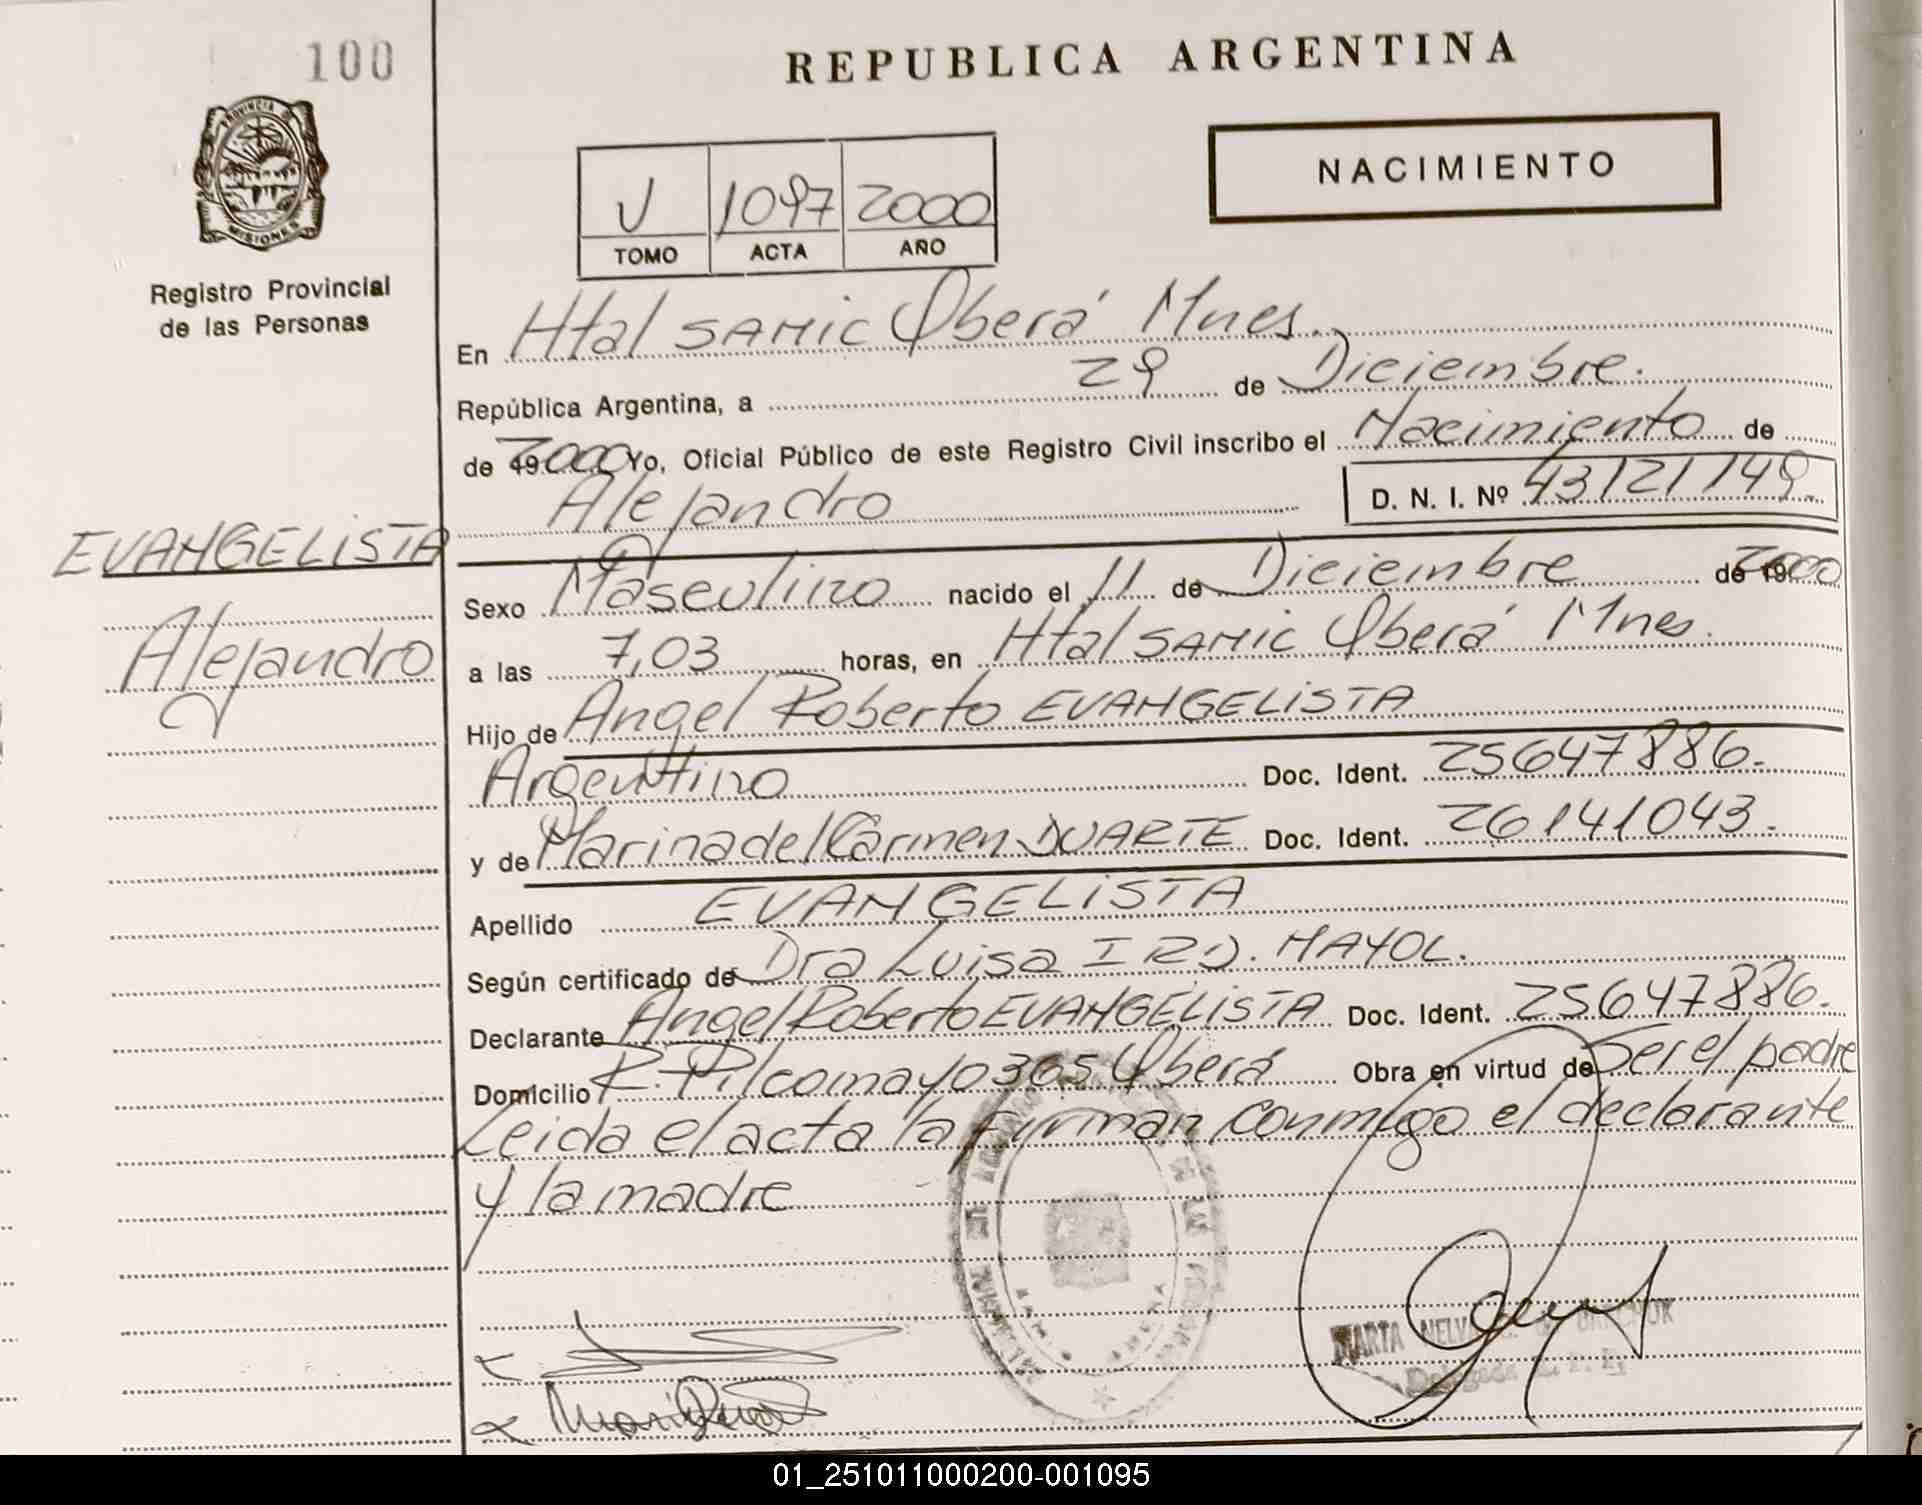 100
REPUBLICA ARGENTINA
PROVINCIA
MISIONES
NACIMIENTO
V 1097 2000
TOMO ACTA AÑO
Registro Provincial
de las Personas
En Htal SAMIC Oberá Mnes.
República Argentina, a 29 de Diciembre.
de 192000 Yo, Oficial Público de este Registro Civil inscribo el Nacimiento de
Alejandro D. N. I. Nº 43121149.
EVANGELISTA
Alejandro
Sexo Masculino nacido el 11 de Diciembre de 192000
a las 7,03 horas, en Htal SAMIC Oberá Mnes.
Hijo de Angel Roberto EVANGELISTA
Argentino Doc. Ident. 25647886.
y de Marina del Carmen DUARTE Doc. Ident. 26141043.
Apellido EVANGELISTA
Según certificado de Dra Luisa I R D. MAYOL.
Declarante Angel Roberto EVANGELISTA Doc. Ident. 25647886.
Domicilio R. Pilcomayo 365 Oberá Obra en virtud de Ser el padre
Leida el acta la firman conmigo el declarante
y la madre
MARTA NELVA
Delegada
01_251011000200-001095